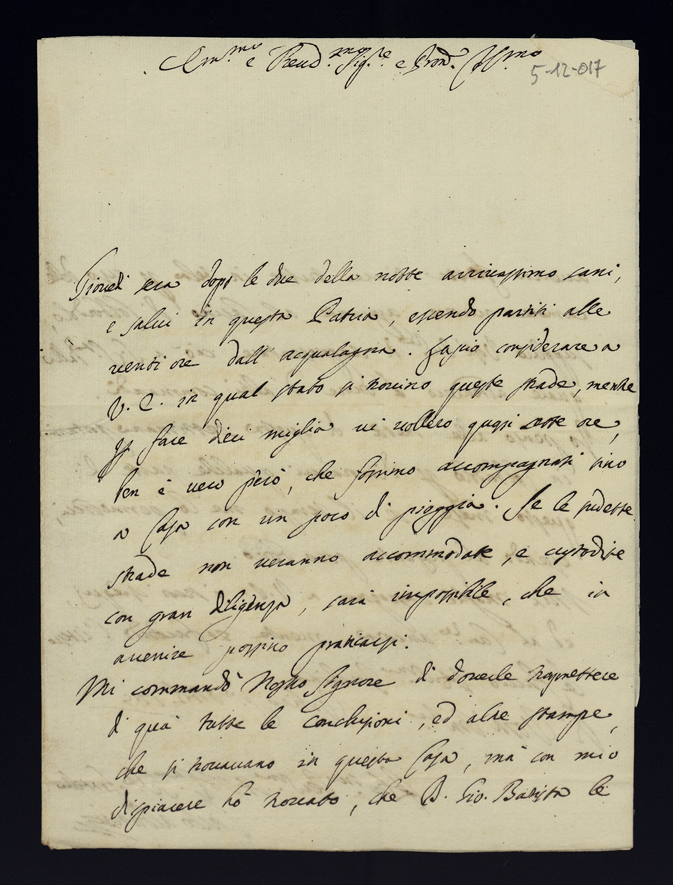 Em.mo e Reud.mo Sig.re e Pron. Col.mo
5-12-017
Giouedì sera dopo le due della notte arriuassimo sani,
e salui in questa Patria, essendo partiti alle
uenti ore dall'acqualagna. Fascio considerare a
V. E. in qual stato si trouino queste strade, mentre
p fare dieci miglia ui uollero quasi sette ore,
ben è uero però, che fossimo accompagnati sino
a Casa con un poco di pioggia. Se le sudette
strade non ueranno accommodate, e custodite
con gran diligenza, sarà impossibile, che in
auuenire possino praticarsi.
Mi commandò Nostro Signore di douerle trasmettere
di quà tutte le Conclusioni, ed altre stampe,
che si trouauano in questa Casa, mà con mio
dispiacere hò trouato, che D. Gio. Battista le